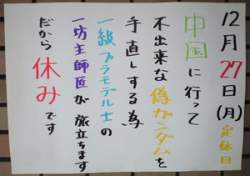 12月27日(月)定休日
中国に行って
不出来な偽ガンダムを
手直しする為
一級プラモデル士の
一坊主師匠が旅立ちます
だから休みです